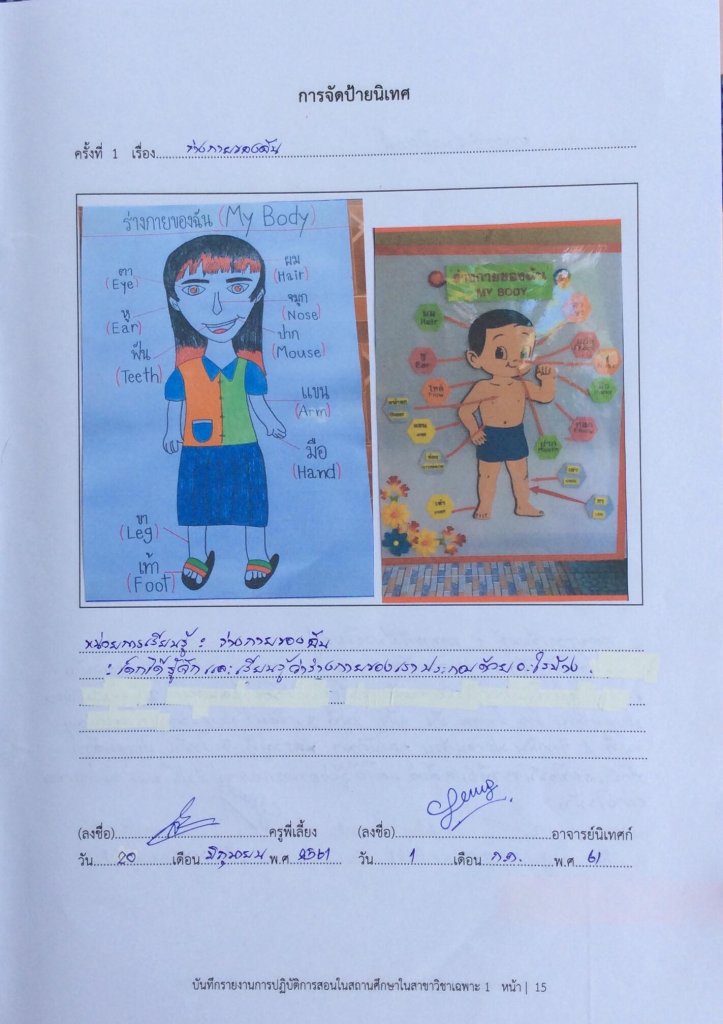 การจัดป้ายนิเทศ
ครั้งที่ 1 เรื่อง ร่างกายของฉัน
ร่างกายของฉัน (My Body)
ตา
(Eye)
หู
(Ear)
ฟัน
(Teeth)
ผม
(Hair)
จมูก
(Nose)
ปาก
(Mouse)
แขน
(Arm)
มือ
(Hand)
ขา
(Leg)
เท้า
(Foot)
ร่างกายของฉัน
MY BODY
ผม
Hair
หู
ไหล่
แขน
ปาก
เท้า
หน่วยการเรียนรู้ : ร่างกายของฉัน
: เด็กได้รู้จัก และเรียนรู้ว่าร่างกายของเราประกอบด้วยอะไรบ้าง
(ลงชื่อ) ครูพี่เลี้ยง (ลงชื่อ) อาจารย์นิเทศก์
วัน 20 เดือน มิถุนายน พ.ศ 2561 วัน 1 เดือน ก.ค. พ.ศ 61
บันทึกรายงานการปฏิบัติการสอนในสถานศึกษาในสาขาวิชาเฉพาะ 1 หน้า | 15